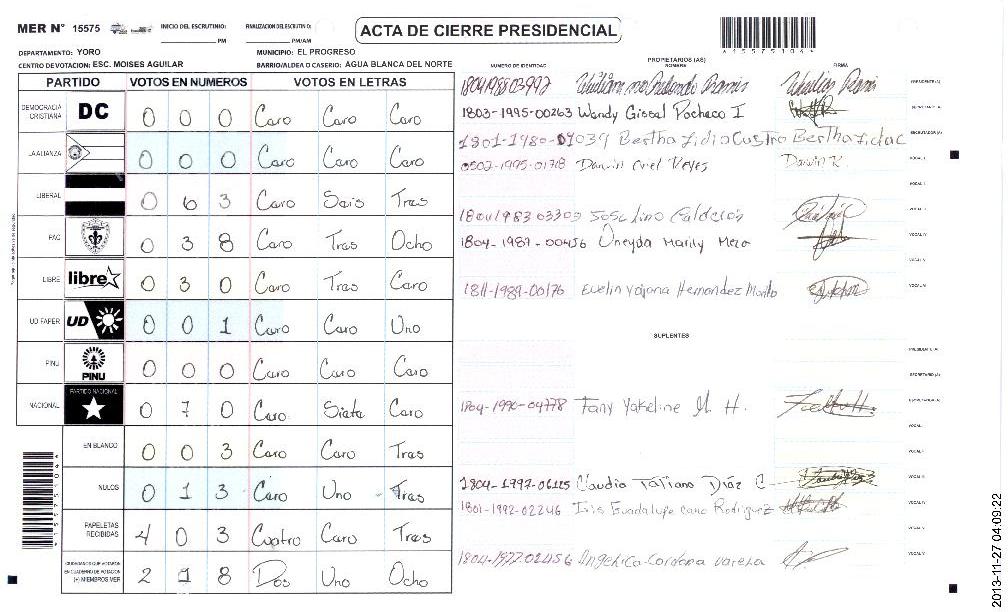 MER N° 15575 INICIO DEL ESCRUTINIO: PM FINALIZACION DEL ESCRUTINIO: PM/AM
ACTA DE CIERRE PRESIDENCIAL
DEPARTAMENTO: YORO MUNICIPIO: EL PROGRESO
CENTRO DE VOTACION: ESC. MOISES AGUILAR BARRIO/ALDEA O CASERIO: AGUA BLANCA DEL NORTE
PARTIDO VOTOS EN NUMEROS VOTOS EN LETRAS
DEMOCRACIA CRISTIANA DC 0 0 0 Caro Caro Caro
LA ALIANZA 0 0 0 Caro Caro Caro
LIBERAL 0 6 3 Caro Sais Tras
PAC 0 3 8 Caro Tras Ocho
LIBRE libre 0 3 0 Caro Tras Caro
UD FAPER UD 0 0 1 Caro Caro Uno
PINU PINU 0 0 0 Caro Caro Caro
NACIONAL PARTIDO NACIONAL 0 7 0 Caro Siata Caro
EN BLANCO 0 0 3 Caro Caro Tras
NULOS 0 1 3 Caro Uno Tras
PAPELETAS RECIBIDAS 4 0 3 Cuatro Caro Tras
CIUDADANOS QUE VOTARON EN CUADERNO DE VOTACION (+) MIEMBROS MER 2 1 8 Dos Uno Ocho
PROPIETARIOS (AS)
NUMERO DE IDENTIDAD NOMBRE FIRMA
PRESIDENTE (A)
1803-1995-00263 Wendy Gissal Pacheco I SECRETARIO (A)
Bertha Lidia Castro ESCRUTADOR (A)
0502-1995-01718 Darwin Ariel Reyes Darwin R. VOCAL I
VOCAL II
1804 1983 03309 VOCAL III
1804-1987-00456 Oneyda Marily VOCAL IV
VOCAL V
1811-1989-00176 Evelin Yojana Hernandez VOCAL VI
SUPLENTES
PRESIDENTE (A)
SECRETARIO (A)
1804-1990-04778 Fany Yakeline M. H. ESCRUTADOR (A)
VOCAL I
VOCAL II
Claudia Tatiana Díaz C VOCAL III
1801-1992-02246 Iris Guadalupe Cano Rodriguez VOCAL IV
VOCAL V
Angelica Cardona Varela VOCAL VI
2013-11-27 04:09:22